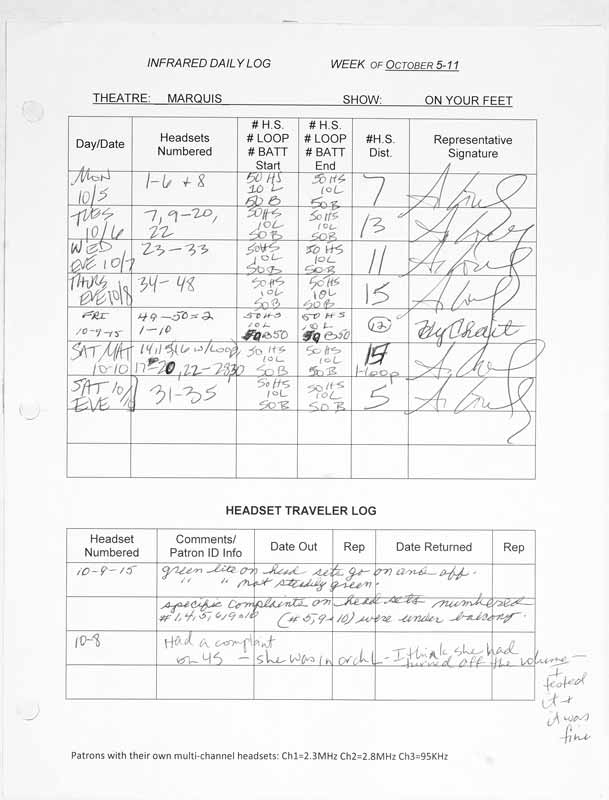 INFRARED DAILY LOG WEEK OF OCTOBER 5-11
THEATRE: MARQUIS SHOW: ON YOUR FEET
Day/Date Headsets Numbered # H.S. # LOOP # BATT Start # H.S. # LOOP # BATT End #H.S. Dist. Representative Signature
MON 10/5 1-6 + 8 50 HS 10 L 50 B 50 HS 10L 50B 7
TUES 10/6 7, 9-20, 22 50HS 10L 50B 50HS 10L 50B 13
WED EVE 10/7 23-33 50HS 10L 50B 50HS 10L 50B 11
THURS EVE 10/8 34-48 50HS 10L 50B 50HS 10L 50B 15
FRI 10-9-15 49-50=2 1-10 50HS 10L 50 50 HS 10L B50 12
SAT MAT 10-10 w/Loop, 50 HS 10L 50B 50HS 10L 50B
SAT 10/10 EVE 31-35 50HS 10L 50B 50HS 10L 50B 5
HEADSET TRAVELER LOG
Headset Numbered Comments/ Patron ID Info Date Out Rep Date Returned Rep
10-9-15 green lite on head sets go on and off.
" " not steadily green.
specific complaints on head sets numbered
#1,4,5,6,9+10 (#5,9+10) were under balcony.
10-8 Had a complant
on 45 - she was in orch L - I think she had
turned off the volume -
I
tested
it +
it was
fine
Patrons with their own multi-channel headsets: Ch1=2.3MHz Ch2=2.8MHz Ch3=95KHz